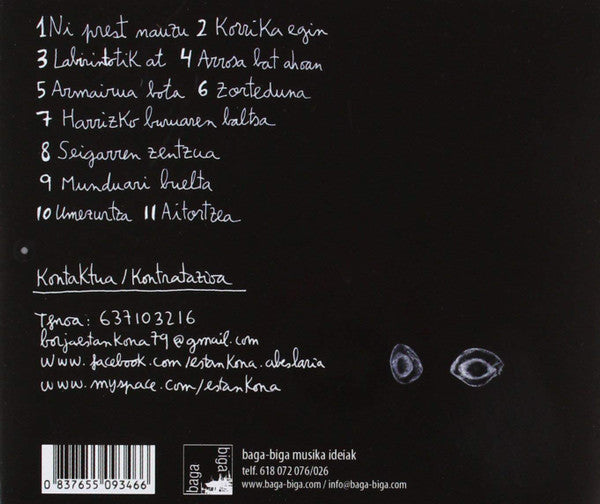 1 Ni prest nauzu 2 Korrika egin
3 Labirintotik at 4 Arrosa bat ahoan
5 Armairua bota 6 Zorteduna
7 Harrizko buruaren baltsa
8 Seigarren zentzua
9 Munduari buelta
10 Umezurtza 11 Aitortzea
Kontaktua/Kontratazioa
Tfnoa: 637103216
borjaestankona79@gmail.com
www.facebook.com/estankona.abeslaria
www.myspace.com/estankona
0 837655 093466
baga biga
baga-biga musika ideiak
telf. 618 072 076/026
www.baga-biga.com / info@baga-biga.com